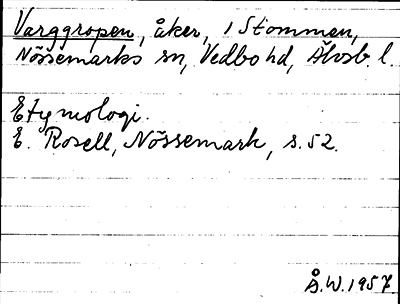 Varggropen, åker, i Stommen,
Nössemarks sn, Vedbo hd, Älvsb l.
Etymologi.
E. Rosell, Nössemark, s. 52.
Å.W. 1957